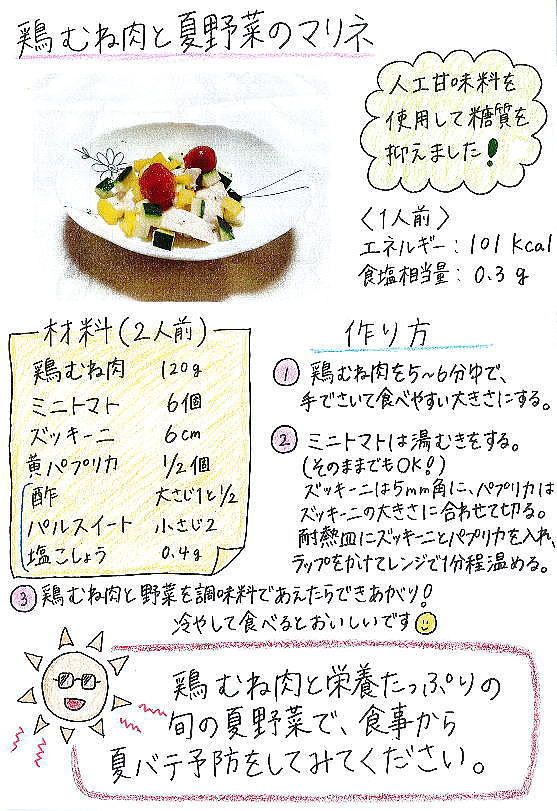 鶏むね肉と夏野菜のマリネ
人工甘味料を
使用して糖質を
抑えました!
〈1人前〉
エネルギー:101 kcal
食塩相当量:0.3g
材料(2人前)
鶏むね肉 120g
ミニトマト 6個
ズッキーニ 6cm
黄パプリカ 1/2個
酢 大さじ1と1/2
パルスイート 小さじ2
塩こしょう 0.4g
作り方
① 鶏むね肉を5~6分ゆで、
手でさいて食べやすい大きさにする。
② ミニトマトは湯むきをする。
(そのままでもOK!)
ズッキーニは5mm角に、パプリカは
ズッキーニの大きさに合わせて切る。
耐熱皿にズッキーニとパプリカを入れ、
ラップをかけてレンジで1分程温める。
③ 鶏むね肉と野菜を調味料であえたらできあがり!
冷やして食べるとおいしいです
鶏むね肉と栄養たっぷりの
旬の夏野菜で、食事から
夏バテ予防をしてみてください。